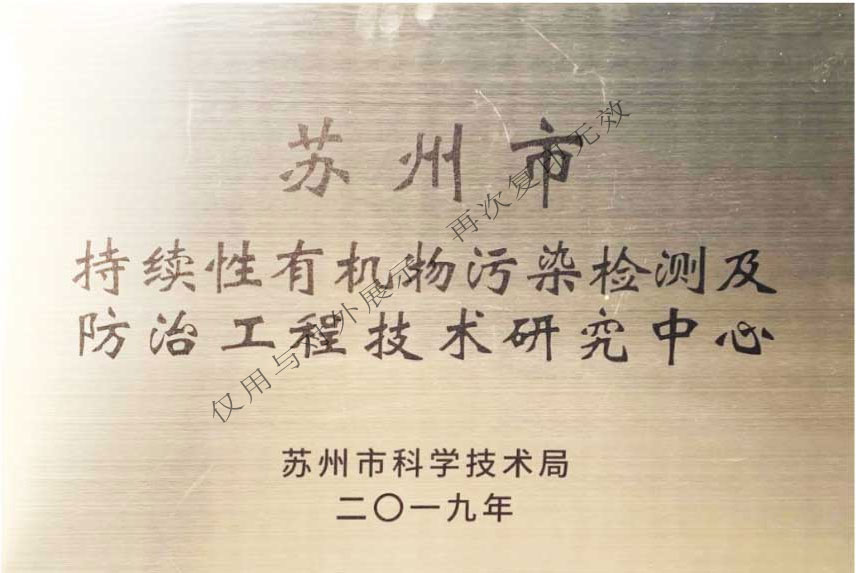 苏州市
持续性有机物污染检测及
防治工程技术研究中心
苏州市科学技术局
二〇一九年
仅用与对外展示 再次复印无效